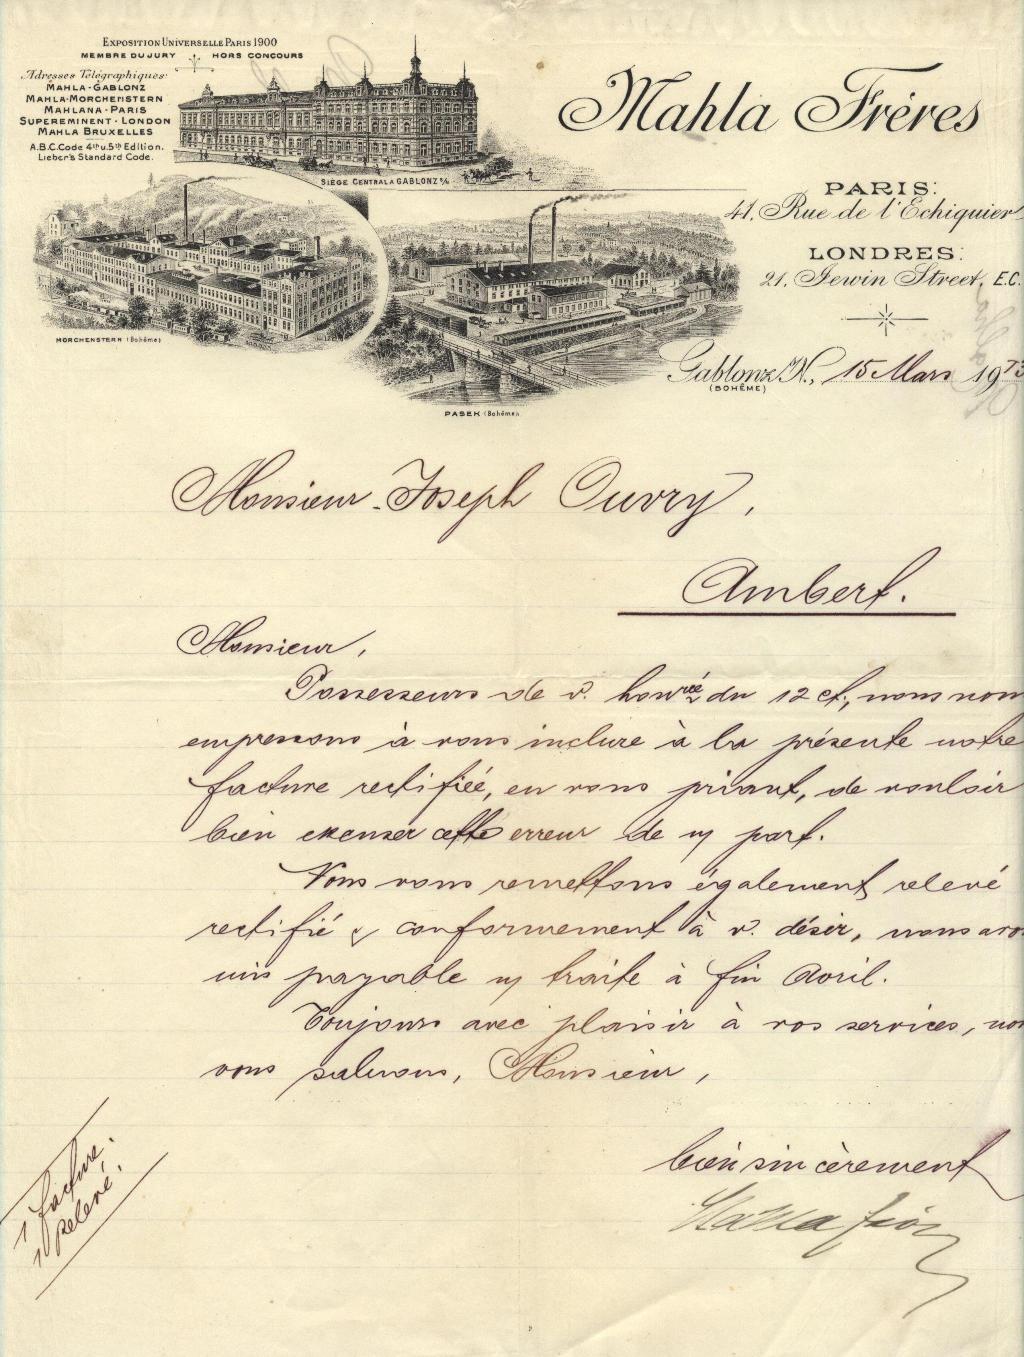 EXPOSITION UNIVERSELLE PARIS 1900
MEMBRE DU JURY HORS CONCOURS
Adresses Télégraphiques:
MAHLA-GABLONZ
MAHLA-MORCHENSTERN
MAHLANA-PARIS
SUPEREMINENT-LONDON
MAHLA BRUXELLES
A.B.C. Code 4th u. 5th Edition.
Lieber's Standard Code.
SIÈGE CENTRAL A GABLONZ a/N
MORCHENSTERN (Bohême)
PASEK (Bohême)
Mahla Frères
PARIS:
41, Rue de l'Echiquier
LONDRES:
21, Jewin Street, E.C.
Gablonz a/N., 15 Mars 19
(BOHÊME)
Monsieur Joseph Ouvry,
Ambert.
Monsieur,
Possesseurs de v. honrée du 12 ct, nous nous
empressons à vous inclure à la présente notre
facture rectifiée, en vous priant, de vouloir
bien excuser cette erreur de n/ part.
Nous vous remettons également relevé
rectifié & conformement à v. désir, nous avo
mis payable n/ traite à fin Avril.
Toujours avec plaisir à vos services, no
vous saluons, Monsieur,
bien sincèrement
Mahla frères
1 facture.
1 relevé.